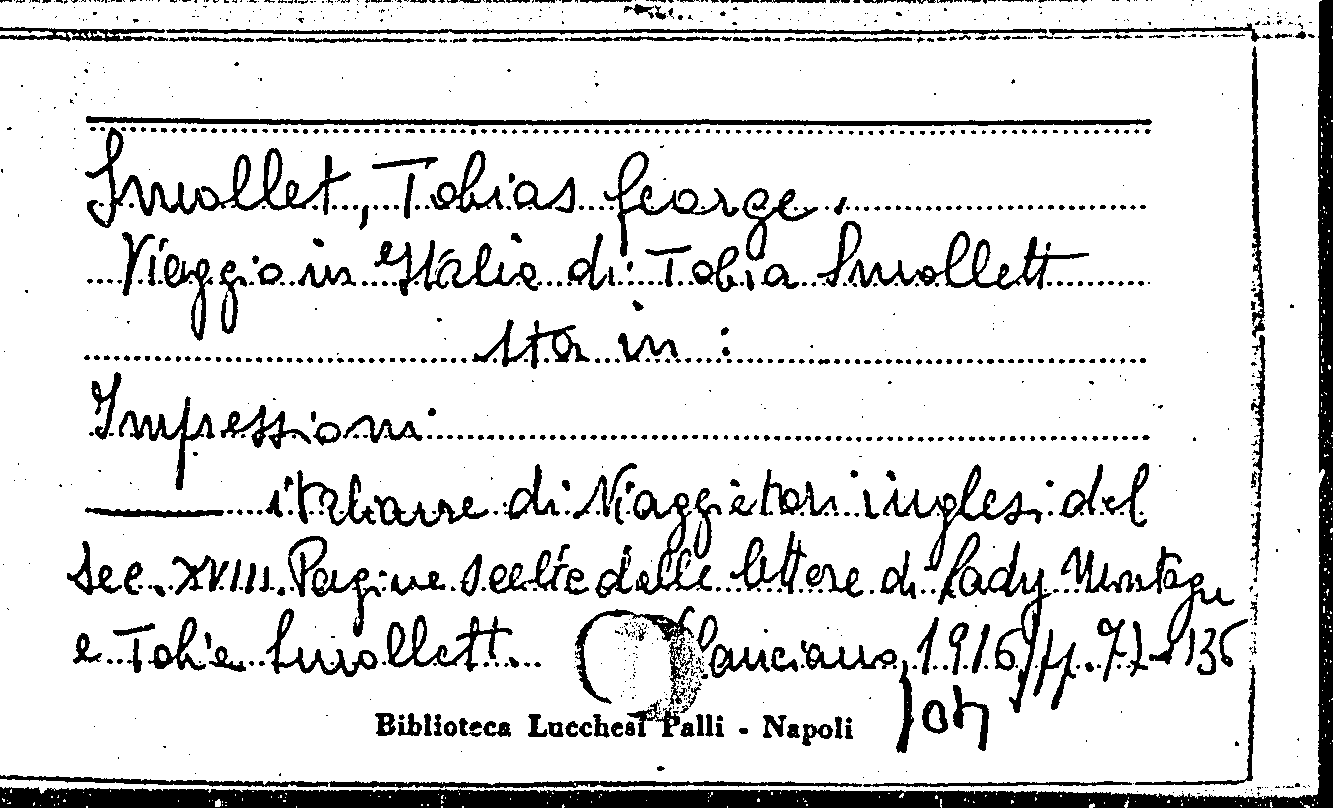 Smollet, Tobias George.
Viaggio in Italia di Tobia Smollett
sta in:
Impressioni
italiane di Viaggiatori inglesi del
sec. XVIII. Pagine scelte delle lettere di Lady Montagu
e Tobia Smollett. Lanciano, 1916, pp. 77-136
Biblioteca Lucchesi Palli - Napoli